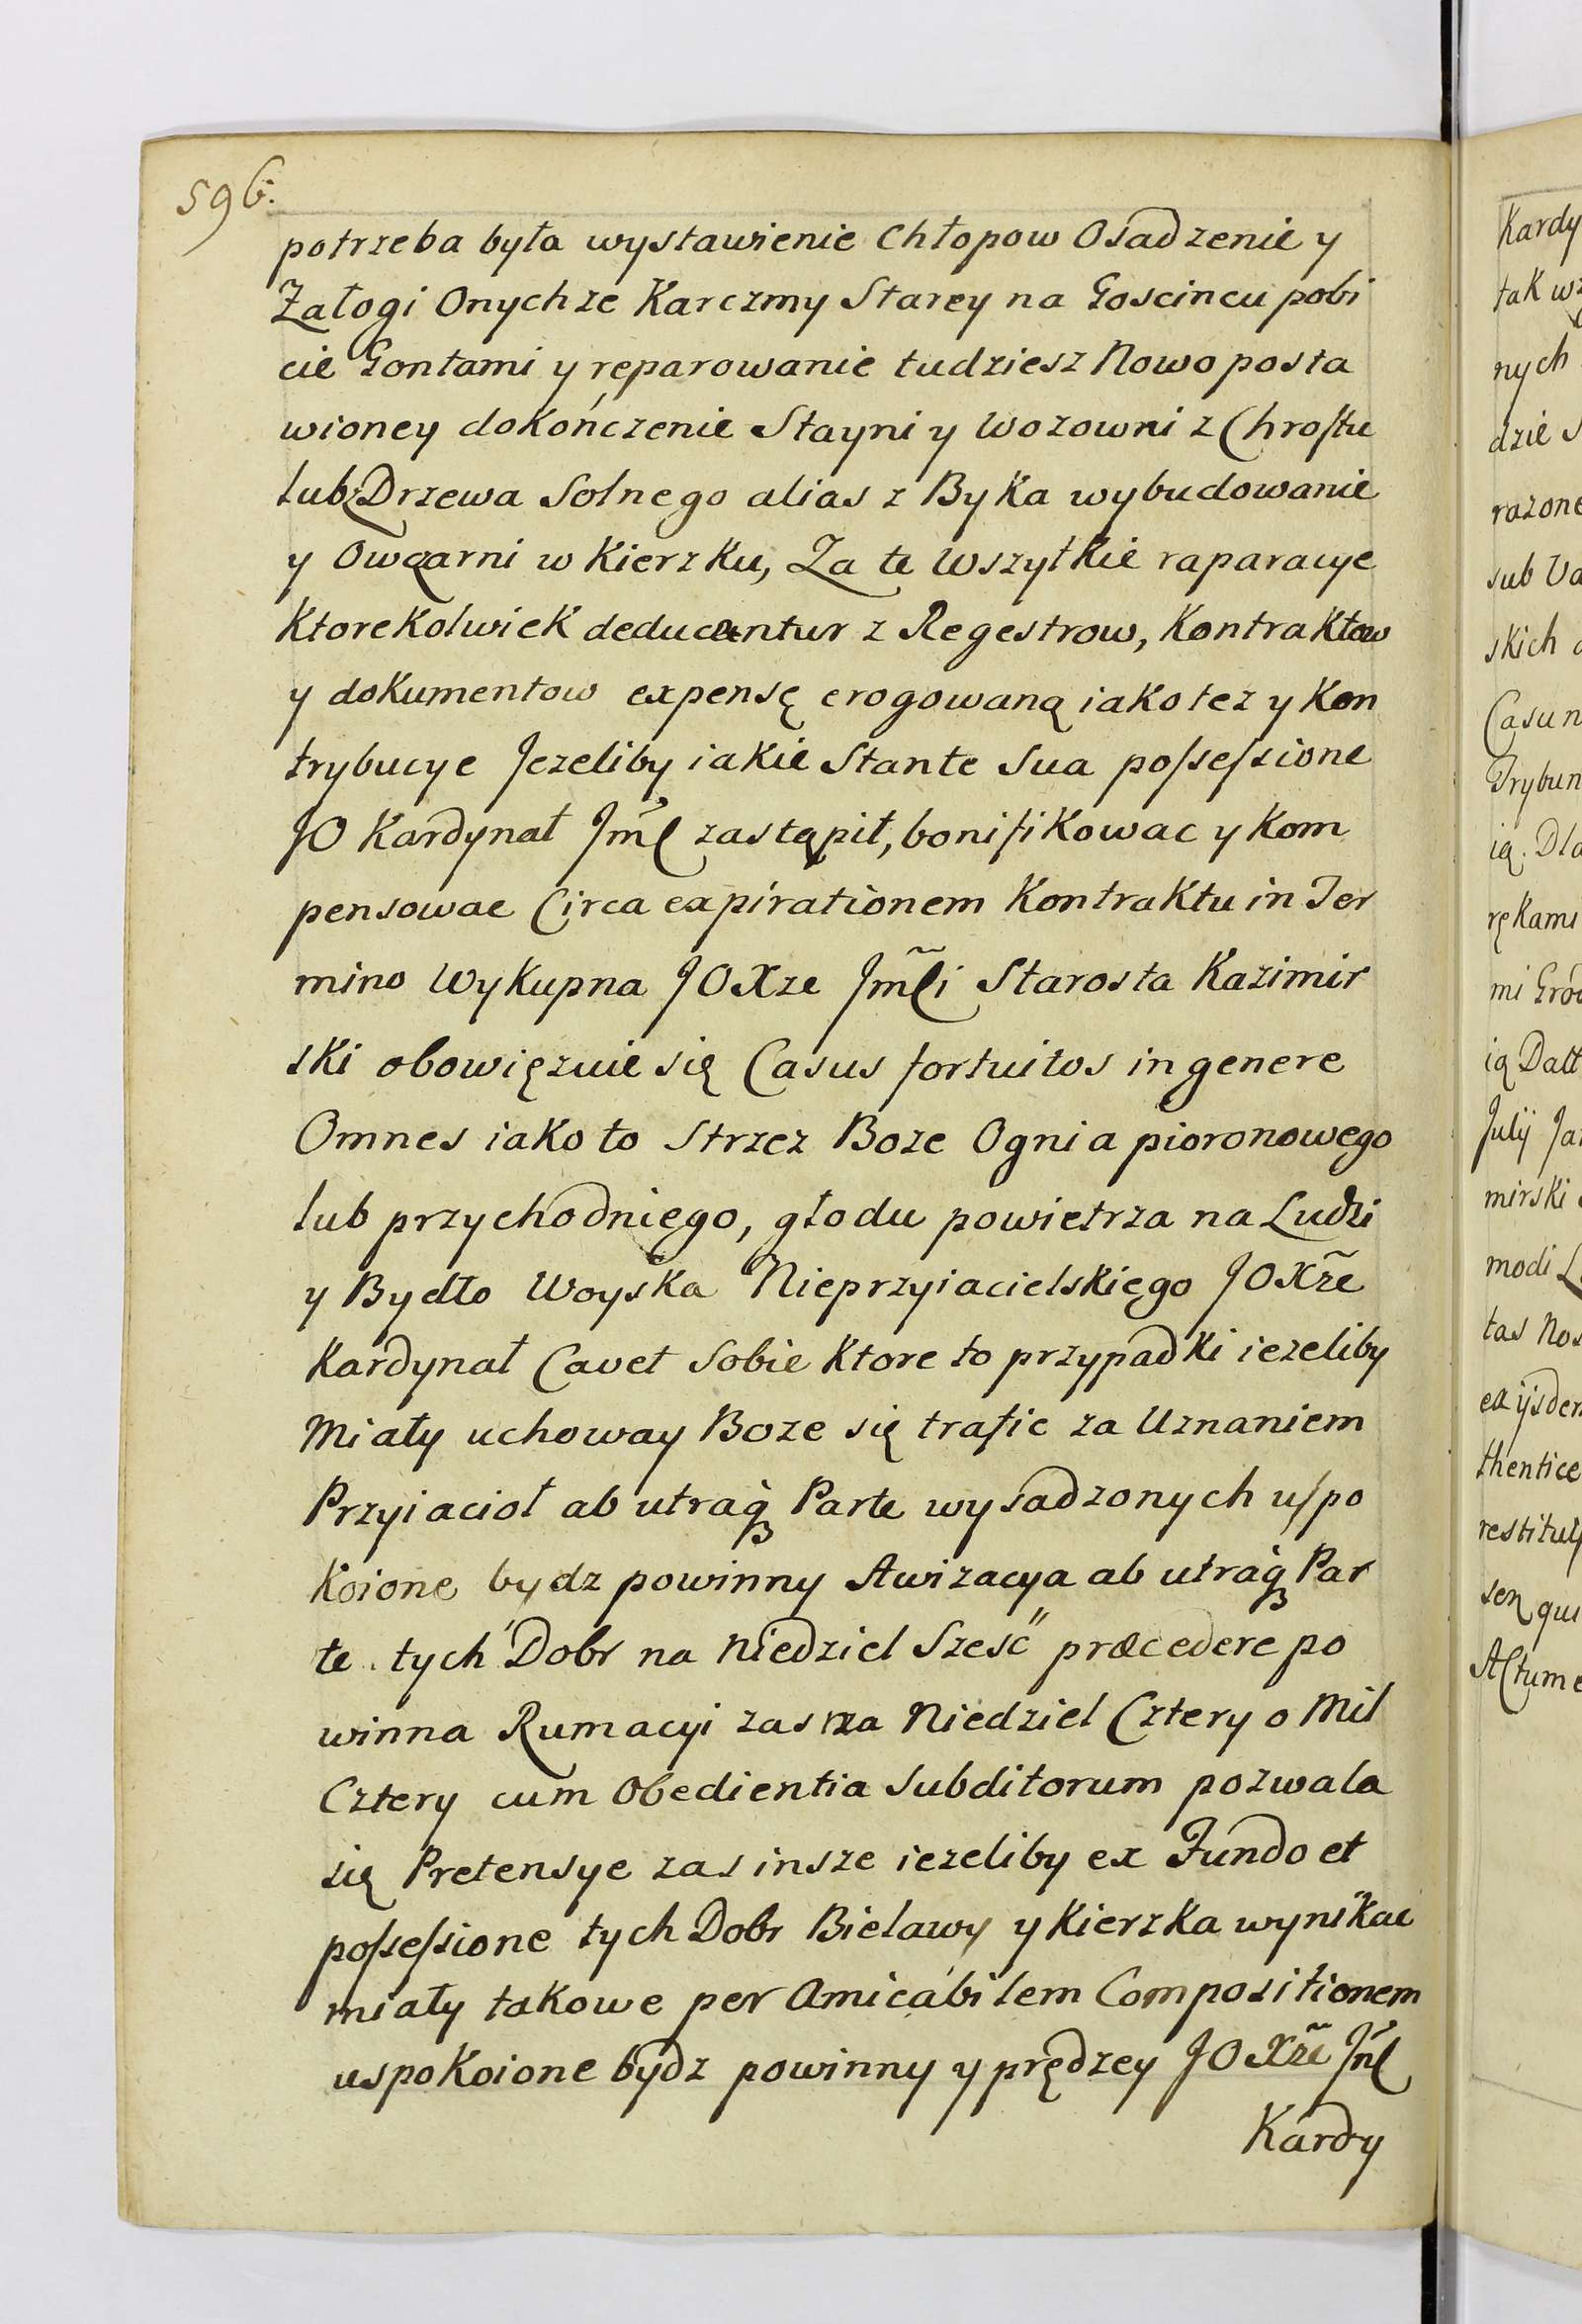 596.
potrzeba była wystawienie Chłopow Osadzenie y
Załogi Onychze Karczmy Starey na Goscincu pobi
cie Gontami y reparowanie tudziesz Nowo posta
wioney dokończenie Stayni y Wozowni z Chrostu
lub z Drzewa Solnego alias z Byka wybudowanie
y Owczarni w Kierzku, Za te Wszytkie raparacye
Ktorekolwiek deducantur z Regestrow, Kontraktow
y dokumentow expensę erogowaną iako tez y Kon
trybucye Jezeliby iakie Stante Sua possessione
JO Kardynał Jmć zastąpił, bonifikowac y Kom
pensowac Circa expirationem Kontraktu in Ter
mino Wykupna JOXze Jmći Starosta Kazimir
ski obowięzuie się Casus fortuitos in genere
Omnes iako to Strzez Boze Ognia pioronowego
lub przychodniego, głodu powietrza na Ludzi
y Bydło Woyska Nieprzyiacielskiego JOXże
Kardynał Cavet Sobie Ktore to przypadki iezeliby
Miały uchoway Boze się trafic za Uznaniem
Przyiacioł ab utraq3 Parte wysadzonych uspo
Koione bydz powinny Awizacya ab utraq3 Par
te tych Dobr na Niedziel Sześć præcedere po
winna Rumacyi zas na Niedziel Cztery o Mil
Cztery cum Obedientia Subditorum pozwala
się Pretensye zas insze iezeliby ex Fundo et
possessione tych Dobr Bielawy y Kierzka wynikac
miały takowe per Amicabilem Compositionem
uspokoione bydz powinny y prędzey JOXże Jmć
Kardy
Kardy
tak wz
nych
dzie S
razone
sub Va
skich
Casu n
Trybun
ią. Dla
rękami
mi Gród
ią Datt
Julij Ja
mirski
modi
tas Nos
ex ijsdem
thentice
restituj
sen qui
Actum e